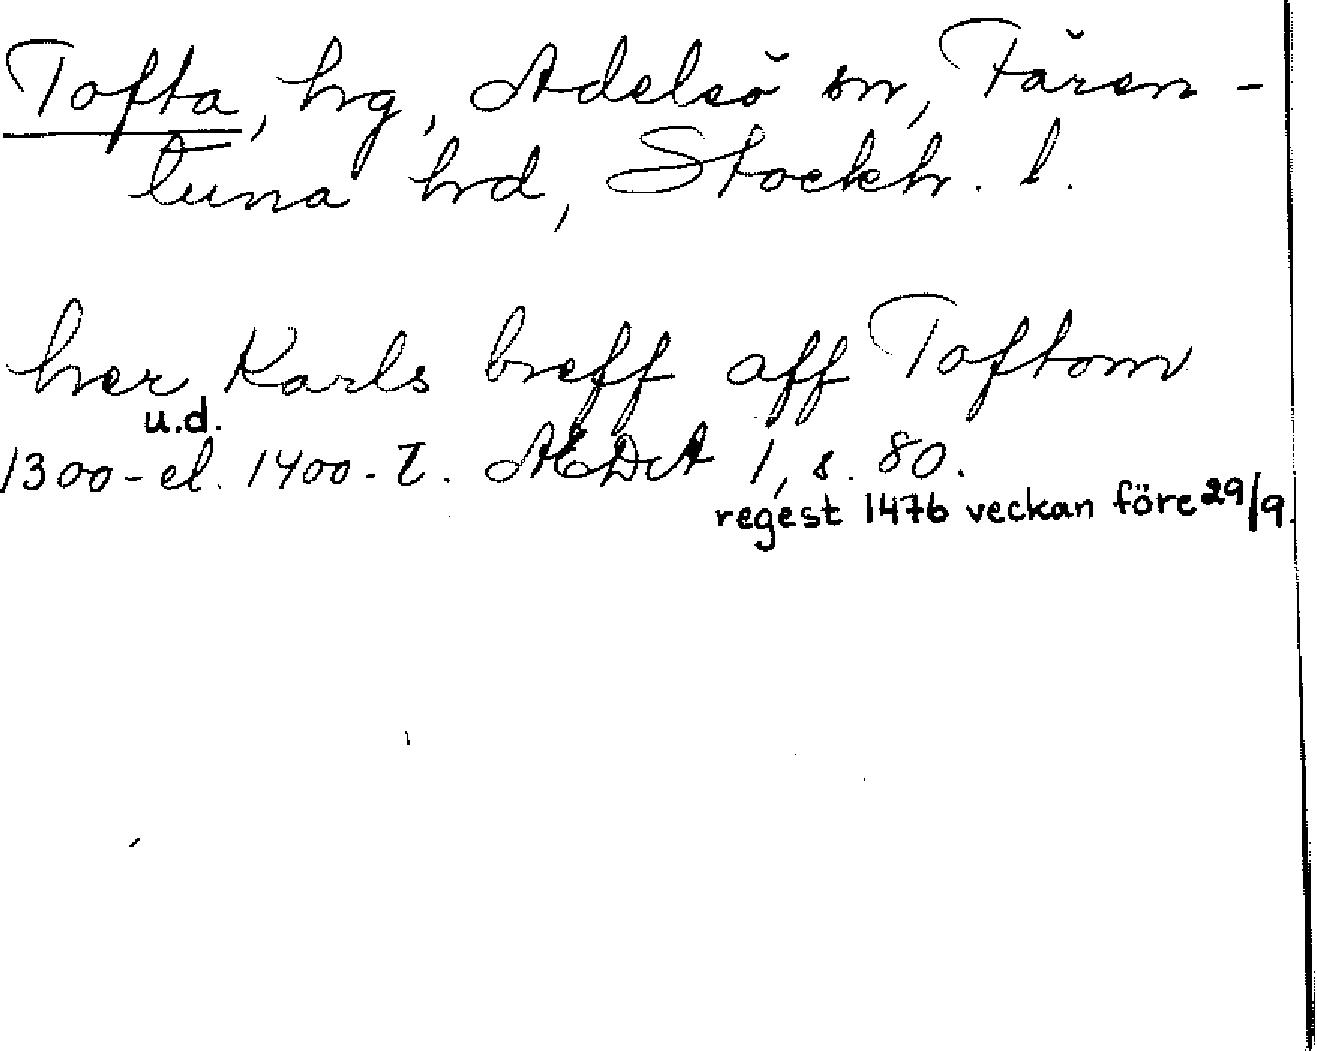 Tofta, hg, Adelsö sn, Fären-
tuna hd, Stockh. l.
her Karls breff aff Toftom
u.d.
1300- el. 1400-t. ÆDA 1, s. 80.
regest 1476 veckan före 29/9.